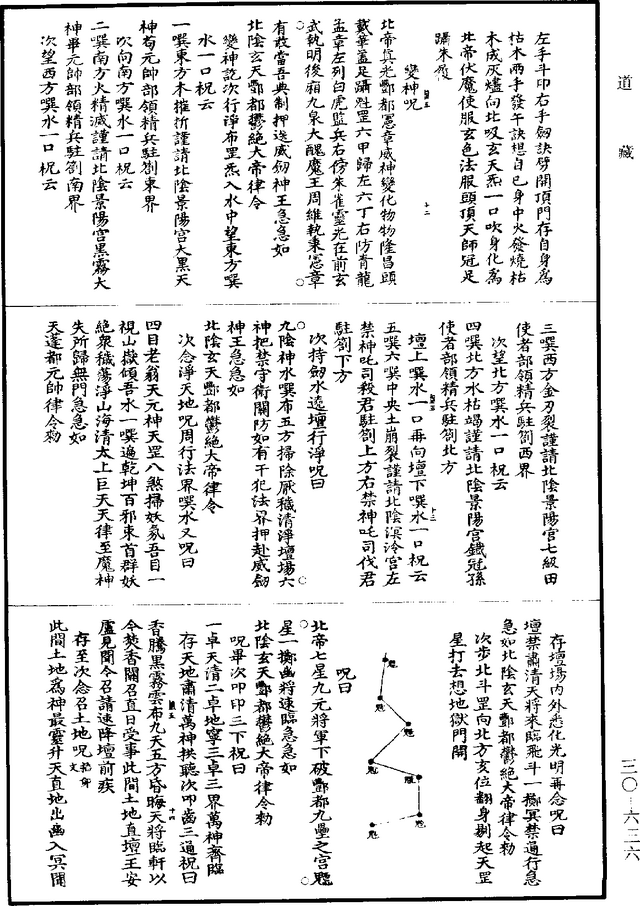 道藏
左手斗印右手劍訣劈開頂門存自身為
枯木兩手發午訣想自己身中火發燒枯
木成灰燼向北吸玄天炁一口吹身化為
北帝伏魔使服玄色法服頭頂天師冠足
躡朱履
變神呪
北帝真光酆都憲章威神變化物物隆昌頭
戴華蓋足躡魁罡六甲歸左六丁右防青龍
孟章左列白虎監兵右傍朱雀靈光在前玄
武執明後廂九泉大醜魔王周維執秉憲章
有敢當吾典制押送威劒神王急急如
北陰玄天酆都鬱絕大帝律令
變神訖次行淨布罡炁入水中望東方噀
水一口祝云
一噀東方木摧折謹請北陰景陽宫大黑天
神苟元帥部領精兵駐劄東界
次向南方噀水一口祝云
二噀南方火精滅謹請北陰景陽宫黑霧大
神畢元帥部領精兵駐劄南界
次望西方噀水一口祝云
三噀西方金刃裂謹請北陰景陽宫七級田
使者部領精兵駐劄西界
次望北方噀水一口祝云
四噀北方水枯竭謹請北陰景陽宫鐵冠孫
使者部領精兵駐劄北方
壇上噀水一口再向壇下噀水一口祝云
五噀六噀中央土崩裂謹請北陰溟泠宫左
禁神吒司殺君駐劄上方右禁神吒司伐君
駐劄下方
次持劒水遶壇行淨呪曰
九陰神水噀布五方掃除厭穢清淨壇場六
神把禁守衛關防如有干犯法界押赴威劒
神王急急如
北陰玄天酆都鬱絕大帝律令
次念淨天地呪周行法界噀水又呪曰
四目老翁天元神天罡八煞掃妖氛吾目一
視山嶽傾吾水一噀遍乾坤百邪束首群妖
絕衆穢蕩淨山海清太上巨天天律至魔神
失所歸無門急急如
天蓬都元帥律令勑
存壇場内外悉化光明再念呪曰
壇禁肅清天將來臨飛斗一擲冥禁通行急
急如北陰玄天酆都鬱絕大帝律令勑
次步北斗罡向北方亥位翻身剔起天罡
星打去想地獄門開
呪曰
北帝七星九元將軍下破酆都九壘之宫魁
星一擲幽將速臨急急如
北陰玄天酆都鬱絕大帝律令勑
呪畢次叩印三下祝曰
一卓天清二卓地寧三卓三界萬神齊臨
存天地肅清萬神拱聽次叩齒三通祝曰
香騰黑霧雲布九天五方昏晦天將臨軒以
今焚香關召直日受事此間土地直壇王安
盧見聞今召請速降壇前疾
存至次念召土地呪
此間土地為神最靈升天直地出幽入冥聞
三〇-六三六